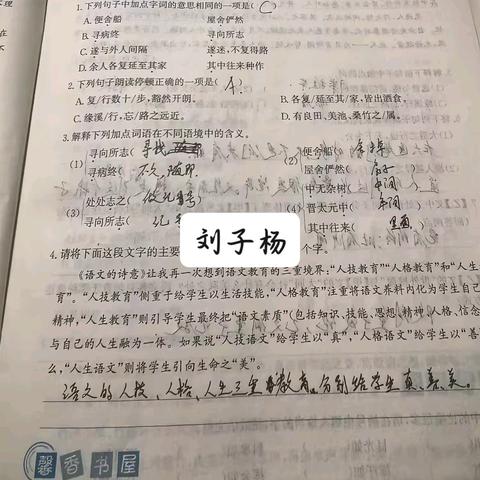 1.下列句子中加点字词的意思相同的一项是( C
A.便舍船 屋舍俨然
B.寻病终 寻向所志
C.遂与外人间隔 遂迷,不复得路
D.余人各复延至其家 其中往来种作
2.下列句子朗读停顿正确的一项是( A )
A.复/行数十/步,豁然开朗。 B.各复/延至其/家,皆出酒食。
C.缘溪/行,忘/路之远近。 D.有良田、美池、桑竹之/属。
3.解释下列加点词语在不同语境中的含义。
(1) 寻向所志( 寻找 (2) 便舍船(
寻病终( 不久 屋舍俨然(
(3) 处处志之( 做记号 中无杂树( 中间
寻向所志( (4) 晋太元中(
其中往来( 里面
刘子杨
4.请将下面这段文字的主要 个字。
《语文的诗意》让我再一次想到语文教育的三重境界:“人技教育”“人格教育”和“人生
育”。“人技教育”侧重于给学生以生活技能,“人格教育”注重将语文养料内化为学生自己
精神,“人生教育”则引导学生最终把“语文素质”(包括知识、技能、思想、精神、人格、信念
与自己的人生融为一体。如果说“人技语文”给学生以“真”,“人格语文”给学生以“善
么,“人生语文”则将学生引向生命之“美”。
语文的人技、人格、人生三重教育,分别给学生真、善、美。
馨香书屋